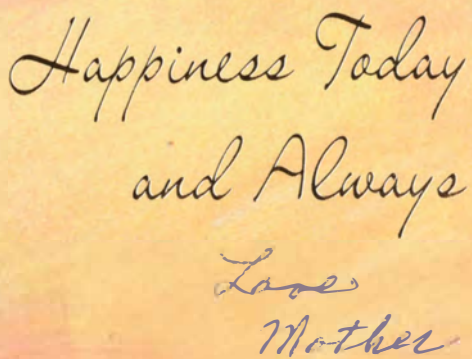 Happiness Today
and Always
Love
Mother